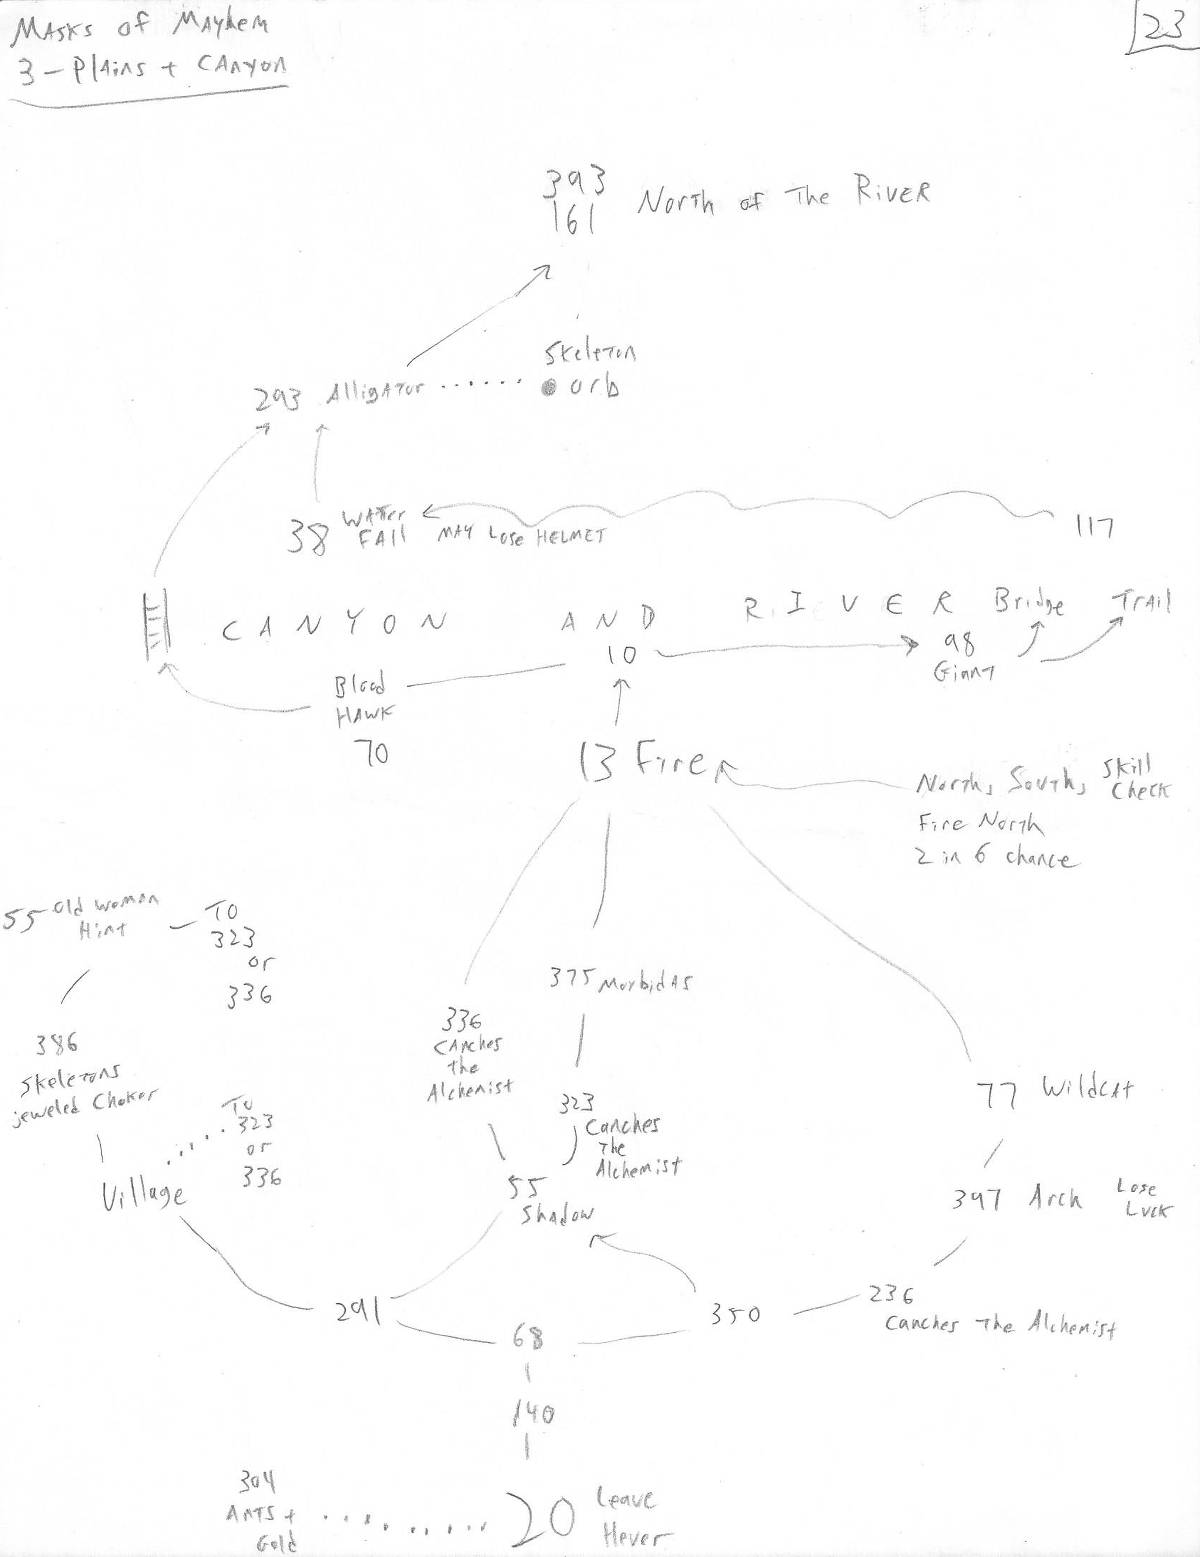 Masks of Mayhem
23
3 - Plains + Canyon
393
161
North of The River
Skeleton
orb
293 Alligator
38 Water
Fall
May Lose Helmet
117
CANYON AND RIVER
Bridge
Trail
10
98
Giant
Blood
Hawk
70
13 Fire
North, South, Skill
Check
Fire North
2 in 6 chance
55 Old Woman
Hint
To
323
or
336
375 Morbidas
386
Skeletons
jeweled Choker
336
Canches
the
Alchemist
77 Wildcat
To
323
or
336
323
Canches
The
Alchemist
Village
55
Shadow
397 Arch Lose
Luck
291
350
236
Canches The Alchemist
68
140
304
Ants +
Gold
20 Leave
Hever